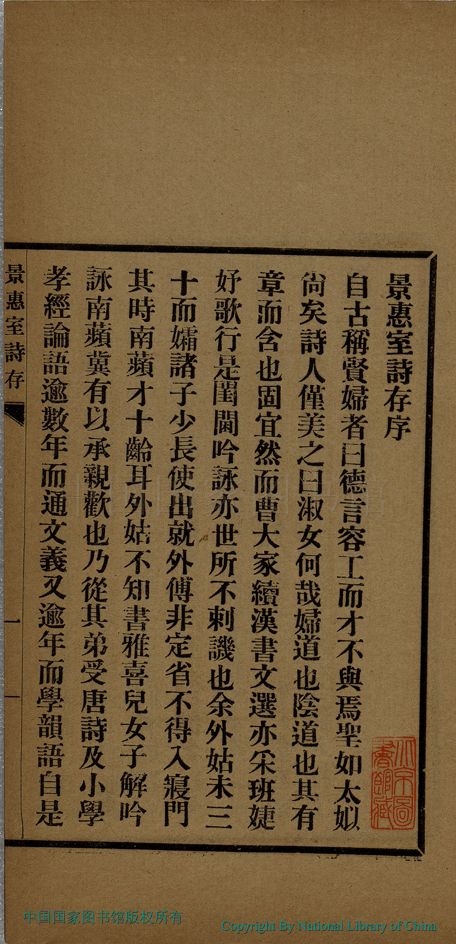 景惠室詩存序
自古稱賢婦者曰德言容工而才不與焉聖如太姒
尙矣詩人僅美之曰淑女何哉婦道也陰道也其有
章而含也固宜然而曹大家續漢書文選亦采班婕
妤歌行是閨閫吟詠亦世所不刺譏也余外姑未三
十而孀諸子少長使出就外傅非定省不得入寢門
其時南蘋才十齡耳外姑不知書雅喜兒女子解吟
詠南蘋冀有以承親歡也乃從其弟受唐詩及小學
孝經論語逾數年而通文義又逾年而學韻語自是
景惠室詩存
一
中国国家图书馆版权所有
Copyright By National Library of China